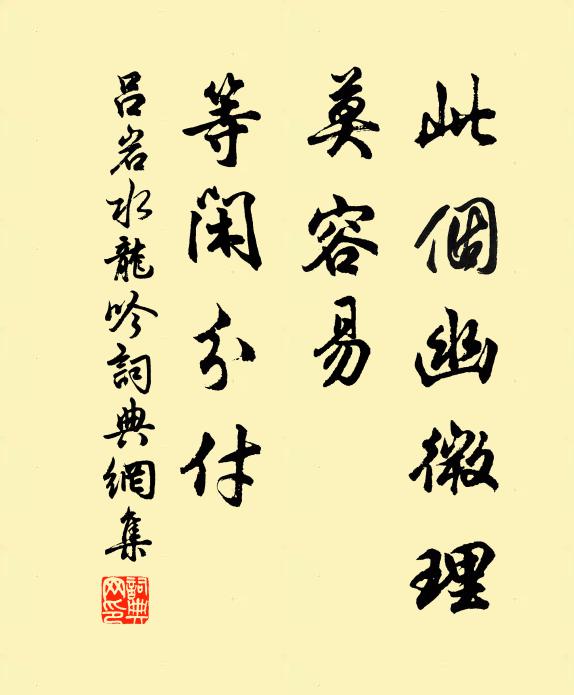 此個幽微理
莫容易
等閑分付
吕岩水龍吟詞典網集
詞典
网印